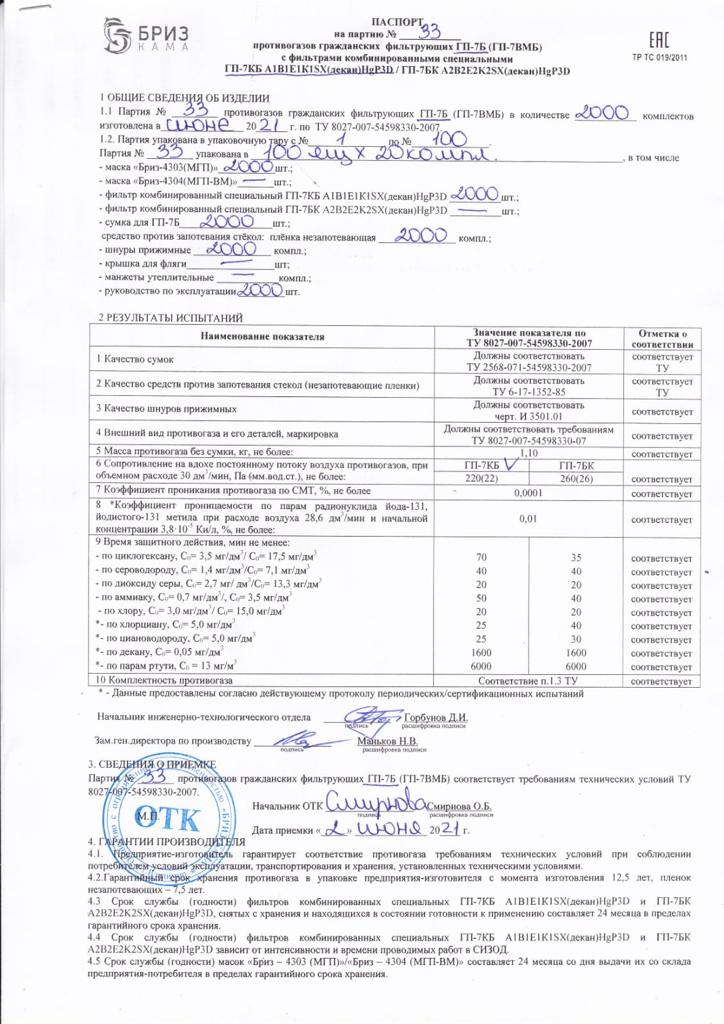 БРИЗ
КАМА
ПАСПОРТ
на партию № 33
противогазов гражданских фильтрующих ГП-7Б (ГП-7ВМБ)
с фильтрами комбинированными специальными
ГП-7КБ A1B1E1K1SX(декан)HgP3D / ГП-7БК A2B2E2K2SX(декан)HgP3D
ЕАС
ТР ТС 019/2011
1 ОБЩИЕ СВЕДЕНИЯ ОБ ИЗДЕЛИИ
1.1 Партия № 33 противогазов гражданских фильтрующих ГП-7Б (ГП-7ВМБ) в количестве 2000 комплектов
изготовлена в июне 2021 г. по ТУ 8027-007-54598330-2007.
1.2. Партия упакована в упаковочную тару с № 1 по № 100.
Партия № 33 упакована в 100 ящ х 20 компл. , в том числе
- маска «Бриз-4303(МГП)» 2000 шт.;
- маска «Бриз-4304(МГП-ВМ)» — шт.;
- фильтр комбинированный специальный ГП-7КБ A1B1E1K1SX(декан)HgP3D 2000 шт.;
- фильтр комбинированный специальный ГП-7БК A2B2E2K2SX(декан)HgP3D — шт.;
- сумка для ГП-7Б 2000 шт.;
средство против запотевания стёкол: плёнка незапотевающая 2000 компл.;
- шнуры прижимные 2000 компл.;
- крышка для фляги — шт;
- манжеты утеплительные — компл.;
- руководство по эксплуатации 2000 шт.
2 РЕЗУЛЬТАТЫ ИСПЫТАНИЙ
Наименование показателя Значение показателя по ТУ 8027-007-54598330-2007 Отметка о соответствии
1 Качество сумок Должны соответствовать ТУ 2568-071-54598330-2007 соответствует ТУ
2 Качество средств против запотевания стекол (незапотевающие пленки) Должны соответствовать ТУ 6-17-1352-85 соответствует ТУ
3 Качество шнуров прижимных Должны соответствовать черт. И 3501.01 соответствует
4 Внешний вид противогаза и его деталей, маркировка Должны соответствовать требованиям ТУ 8027-007-54598330-07 соответствует
5 Масса противогаза без сумки, кг, не более: 1,10 соответствует
6 Сопротивление на вдохе постоянному потоку воздуха противогазов, при ГП-7КБ ГП-7БК
объемном расходе 30 дм³/мин, Па (мм.вод.ст.), не более: 220(22) 260(26) соответствует
7 Коэффициент проникания противогаза по СМТ, %, не более 0,0001 соответствует
8 *Коэффициент проницаемости по парам радионуклида йода-131,
йодистого-131 метила при расходе воздуха 28,6 дм³/мин и начальной 0,01 соответствует
концентрации 3,8·10⁻⁵ Ки/л, %, не более:
9 Время защитного действия, мин не менее:
- по циклогексану, C₀= 3,5 мг/дм³/ C₀= 17,5 мг/дм³ 70 35 соответствует
- по сероводороду, C₀= 1,4 мг/дм³/C₀= 7,1 мг/дм³ 40 40 соответствует
- по диоксиду серы, C₀= 2,7 мг/ дм³/C₀= 13,3 мг/дм³ 20 20 соответствует
- по аммиаку, C₀= 0,7 мг/дм³/, C₀= 3,5 мг/дм³ 50 40 соответствует
- по хлору, C₀= 3,0 мг/дм³/ C₀= 15,0 мг/дм³ 20 20 соответствует
*- по хлорциану, C₀= 5,0 мг/дм³ 25 40 соответствует
*- по циановодороду, C₀= 5,0 мг/дм³ 25 30 соответствует
*- по декану, C₀= 0,05 мг/дм³ 1600 1600 соответствует
*- по парам ртути, C₀ = 13 мг/м³ 6000 6000 соответствует
10 Комплектность противогаза Соответствие п.1.3 ТУ соответствует
* - Данные предоставлены согласно действующему протоколу периодических/сертификационных испытаний
Начальник инженерно-технологического отдела Горбунов Д.И.
подпись расшифровка подписи
Зам.ген.директора по производству Маньков Н.В.
подпись расшифровка подписи
3. СВЕДЕНИЯ О ПРИЕМКЕ
Партия № 33 противогазов гражданских фильтрующих ГП-7Б (ГП-7ВМБ) соответствует требованиям технических условий ТУ
8027-007-54598330-2007.
Начальник ОТК Смирнова Смирнова О.Б.
М.П. ОТК
подпись расшифровка подписи
Дата приемки « 2 » июне 2021 г.
4. ГАРАНТИИ ПРОИЗВОДИТЕЛЯ
4.1. Предприятие-изготовитель гарантирует соответствие противогаза требованиям технических условий при соблюдении
потребителем условий эксплуатации, транспортирования и хранения, установленных техническими условиями.
4.2.Гарантийный срок хранения противогаза в упаковке предприятия-изготовителя с момента изготовления 12,5 лет, пленок
незапотевающих – 7,5 лет.
4.3 Срок службы (годности) фильтров комбинированных специальных ГП-7КБ A1B1E1K1SX(декан)HgP3D и ГП-7БК
A2B2E2K2SX(декан)HgP3D, снятых с хранения и находящихся в состоянии готовности к применению составляет 24 месяца в пределах
гарантийного срока хранения.
4.4 Срок службы (годности) фильтров комбинированных специальных ГП-7КБ A1B1E1K1SX(декан)HgP3D и ГП-7БК
A2B2E2K2SX(декан)HgP3D зависит от интенсивности и времени проводимых работ в СИЗОД.
4.5 Срок службы (годности) масок «Бриз – 4303 (МГП)»/«Бриз – 4304 (МГП-ВМ)» составляет 24 месяца со дня выдачи их со склада
предприятия-потребителя в пределах гарантийного срока хранения.